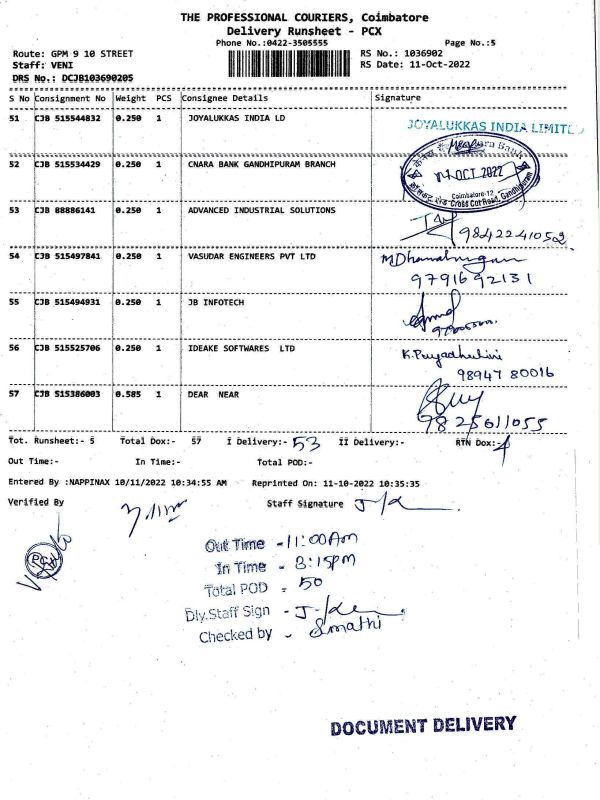 THE PROFESSIONAL COURIERS, Coimbatore
Delivery Runsheet - PCX
Phone No.:0422-3505555 Page No.:5
Route: GPM 9 10 STREET RS No.: 1036902
Staff: VENI RS Date: 11-Oct-2022
DRS No.: DCJB103690205
S No Consignment No Weight PCS Consignee Details Signature
51 CJB 515544832 0.250 1 JOYALUKKAS INDIA LD JOYALUKKAS INDIA LIMIT
52 CJB 515534429 0.250 1 CNARA BANK GANDHIPURAM BRANCH
OCT 2022
Coimbatore-12
Cross Cut Road, Gandhipuram
53 CJB 88886141 0.250 1 ADVANCED INDUSTRIAL SOLUTIONS
9842241052
54 CJB 515497841 0.250 1 VASUDAR ENGINEERS PVT LTD
9791692131
55 CJB 515494931 0.250 1 JB INFOTECH
56 CJB 515525706 0.250 1 IDEAKE SOFTWARES LTD
98947 80016
57 CJB 515386003 0.585 1 DEAR NEAR
9825611055
Tot. Runsheet:- 5 Total Dox:- 57 I Delivery:- 53 II Delivery:- RTN Dox:- 4
Out Time:- In Time:- Total POD:-
Entered By :NAPPINAX 10/11/2022 10:34:55 AM Reprinted On: 11-10-2022 10:35:35
Verified By Staff Signature
PCX
Out Time - 11:00Am
In Time - 3:15PM
Total POD - 50
Dly.Staff Sign -
Checked by -
DOCUMENT DELIVERY